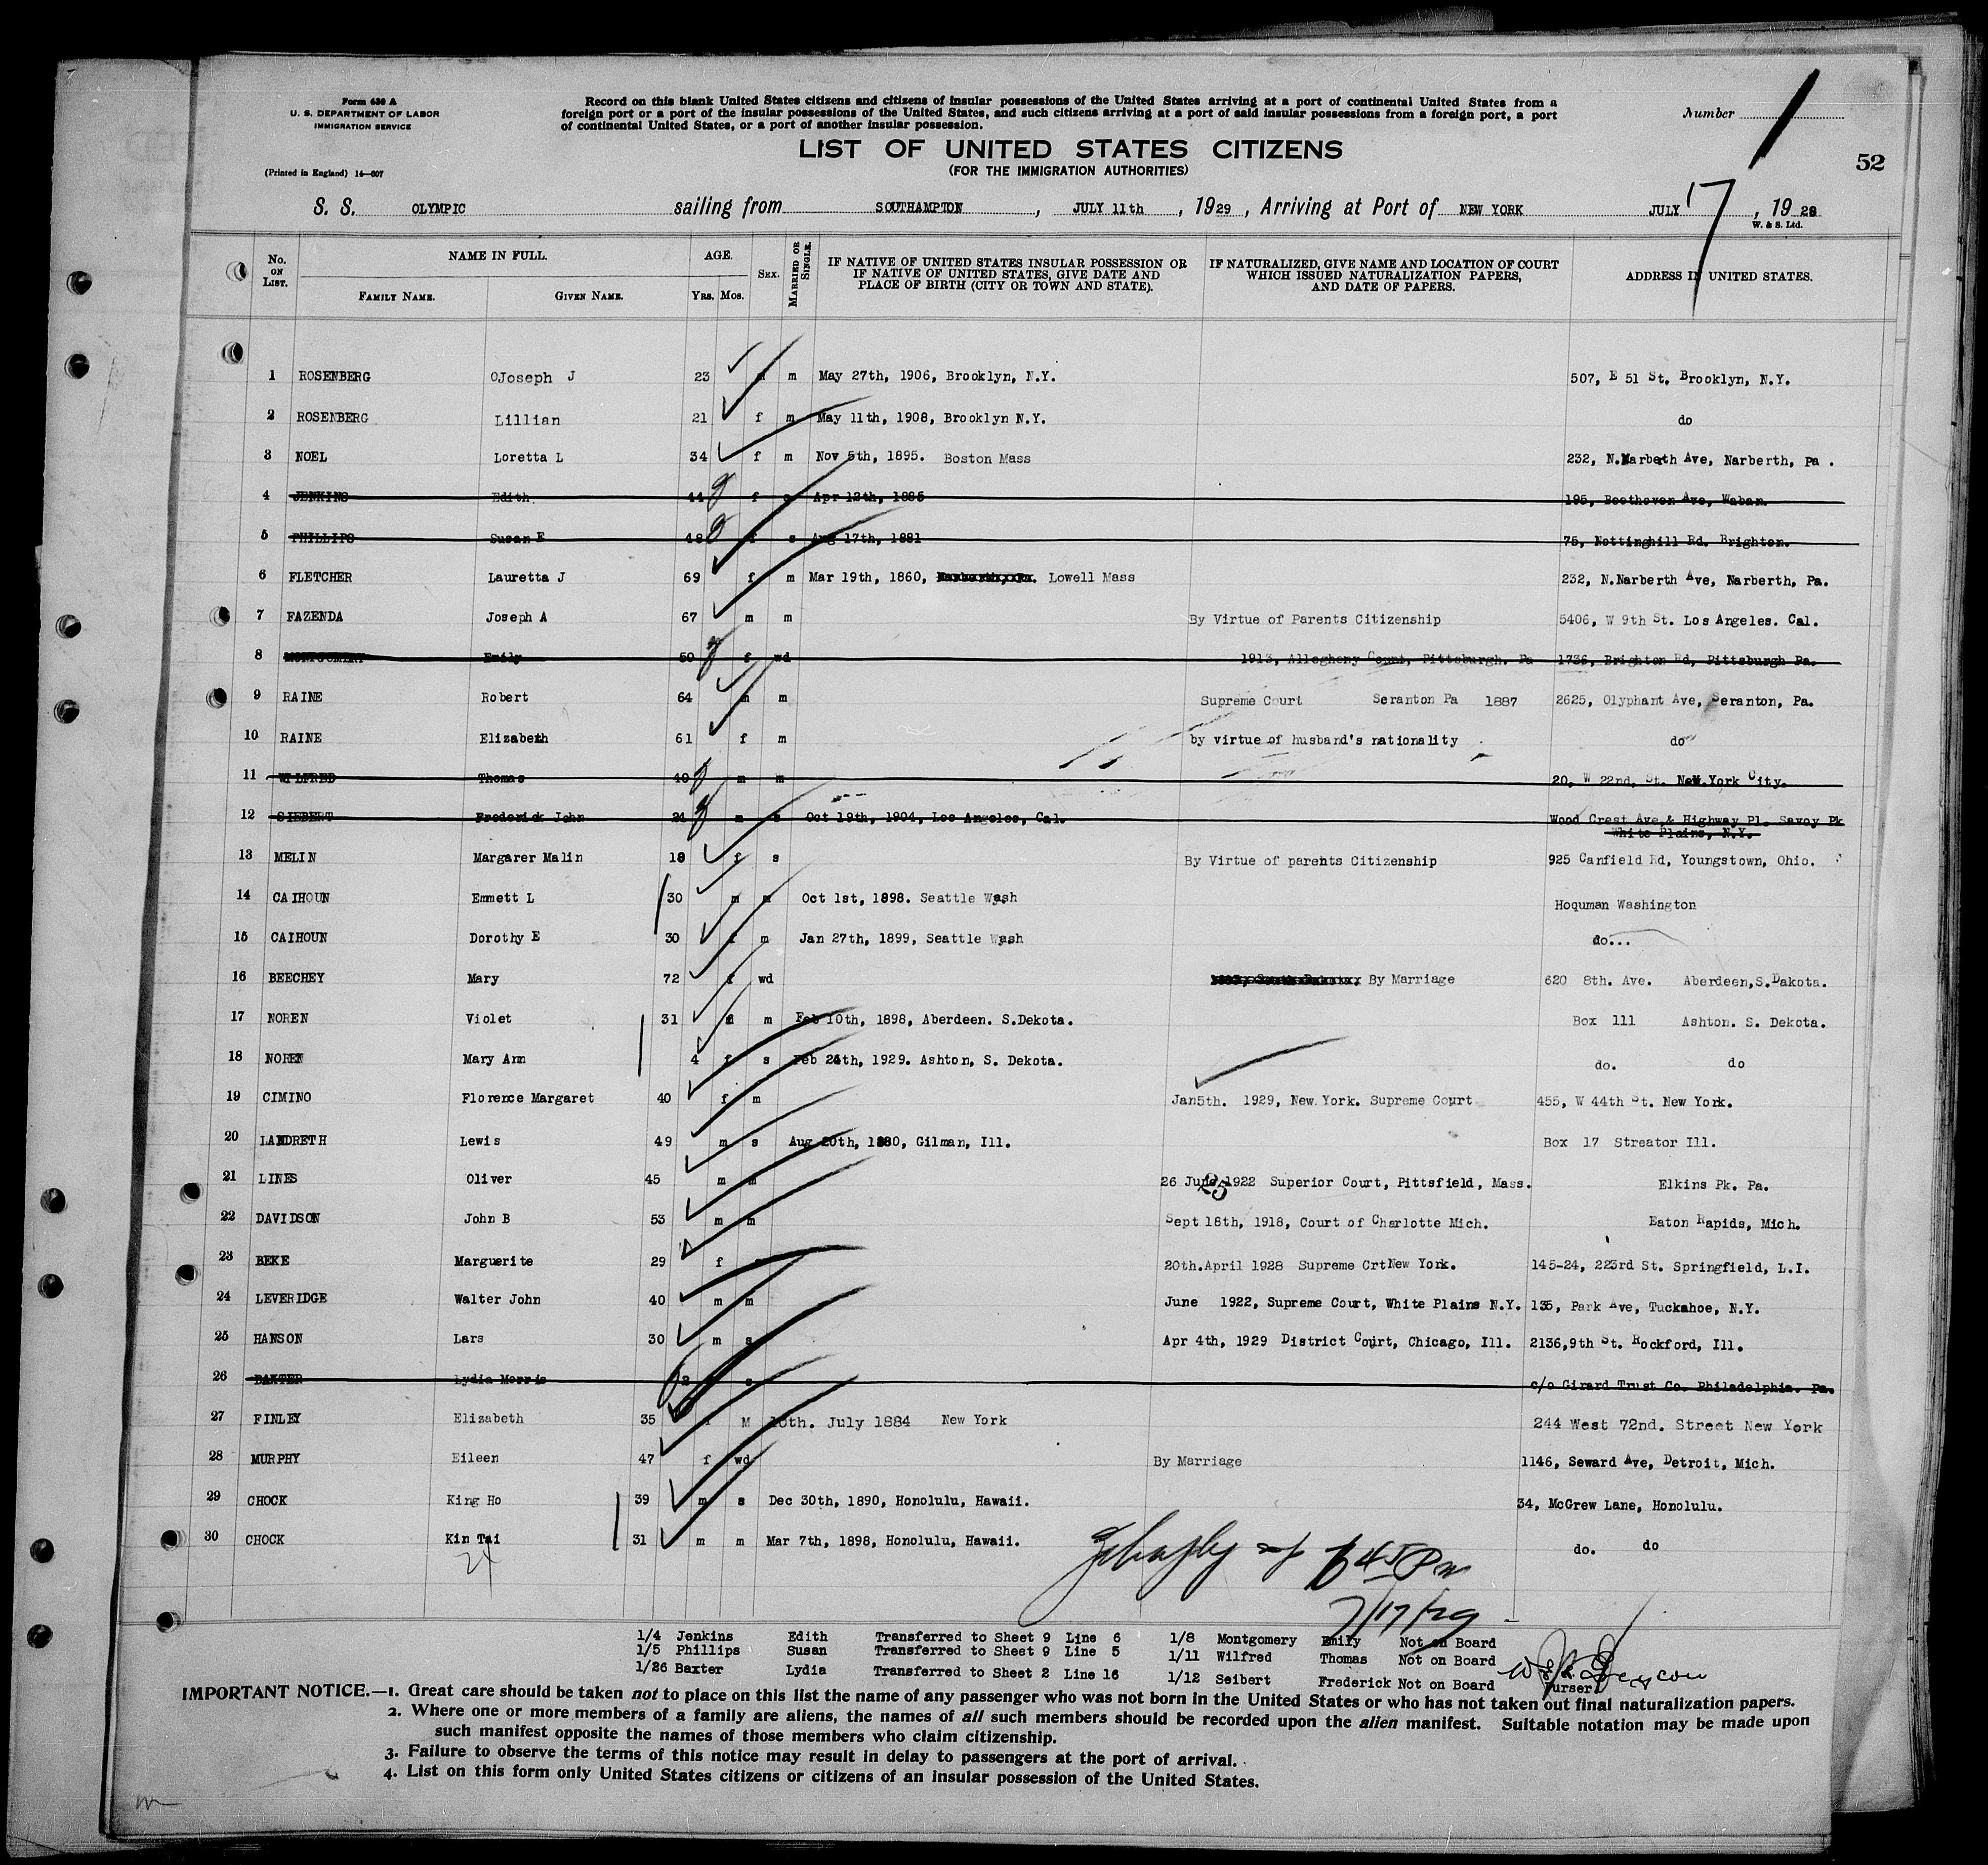 Form 630 A
U. S. DEPARTMENT OF LABOR
IMMIGRATION SERVICE
(Printed in England) 14—607
Record on this blank United States citizens and citizens of insular possessions of the United States arriving at a port of continental United States from a
foreign port or a port of the insular possessions of the United States, and such citizens arriving at a port of said insular possessions from a foreign port, a port
of continental United States, or a port of another insular possession.
Number 1
52
LIST OF UNITED STATES CITIZENS
(FOR THE IMMIGRATION AUTHORITIES)
S. S. OLYMPIC sailing from SOUTHAMPTON, JULY 11th, 1929, Arriving at Port of NEW YORK JULY 17, 1929
W. & S. Ltd.
No. ON LIST. NAME IN FULL. FAMILY NAME. GIVEN NAME. AGE. YRS. MOS. SEX. MARRIED OR SINGLE. IF NATIVE OF UNITED STATES INSULAR POSSESSION OR IF NATIVE OF UNITED STATES, GIVE DATE AND PLACE OF BIRTH (CITY OR TOWN AND STATE). IF NATURALIZED, GIVE NAME AND LOCATION OF COURT WHICH ISSUED NATURALIZATION PAPERS, AND DATE OF PAPERS. ADDRESS IN UNITED STATES.
1 ROSENBERG OJoseph J 23 m May 27th, 1906, Brooklyn, N.Y. 507, E 51 St. Brooklyn, N.Y.
2 ROSENBERG Lillian 21 f m May 11th, 1908, Brooklyn N.Y. do
3 NOEL Loretta L 34 f m Nov 5th, 1895. Boston Mass 232, N.Narbeth Ave, Narberth, Pa .
4 JENKINS Edith 44 f s Apr 12th, 1885 195, Beethoven Ave, Waban.
5 PHILLIPS Susan E 48 f s Aug 17th, 1881 75, Nottinghill Rd. Brighton.
6 FLETCHER Lauretta J 69 f m Mar 19th, 1860, Lowell Mass 232, N.Narberth Ave, Narberth, Pa.
7 FAZENDA Joseph A 67 m m By Virtue of Parents Citizenship 5406, W 9th St. Los Angeles. Cal.
8 MONTGOMERY Emily 50 f wd 1913, Allegheny Court, Pittsburgh. Pa 1736, Brighton Rd, Pittsburgh Pa.
9 RAINE Robert 64 m m Supreme Court Scranton Pa 1887 2625, Olyphant Ave, Seranton, Pa.
10 RAINE Elizabeth 61 f m by virtue of husband's nationality do
11 WILFRED Thomas 40 m m 20, W 22nd, St. New.York City.
12 SIEBERT Frederick John 24 m s Oct 19th, 1904, Los Angeles, Cal. Wood Crest Ave,& Highway Pl. Savoy Pk
White Plains, N.Y.
13 MELIN Margarer Malin 18 f s By Virtue of parents Citizenship 925 Canfield Rd, Youngstown, Ohio.
14 CAIHOUN Emmett L 30 m m Oct 1st, 1898. Seattle Wash Hoquman Washington
15 CAIHOUN Dorothy E 30 f m Jan 27th, 1899, Seattle Wash do...
16 BEECHEY Mary 72 f wd By Marriage 620 8th. Ave. Aberdeen,S.Dakota.
17 NOREN Violet 31 f m Feb 10th, 1898, Aberdeen. S.Dekota. Box 111 Ashton. S. Dekota.
18 NOREN Mary Ann 4 f s Feb 26th, 1929. Ashton, S. Dekota. do. do
19 CIMINO Florence Margaret 40 f m Jan5th. 1929, New.York. Supreme Court 455, W 44th St. New York.
20 LANDRETH Lewis 49 m s Aug 20th, 1880, Gilman, Ill. Box 17 Streator Ill.
21 LINES Oliver 45 m m 26 June 1922 Superior Court, Pittsfield, Mass. Elkins Pk. Pa.
25
22 DAVIDSON John B 53 m m Sept 18th, 1918, Court of Charlotte Mich. Eaton Rapids, Mich.
23 BEKE Marguerite 29 f 20th.April 1928 Supreme CrtNew York. 145-24, 223rd St. Springfield, L.I.
24 LEVERIDGE Walter John 40 m m June 1922, Supreme Court, White Plains N.Y. 135, Park Ave, Tuckahoe, N.Y.
25 HANSON Lars 30 m s Apr 4th, 1929 District Court, Chicago, Ill. 2136,9th St. Rockford, Ill.
26 BAXTER Lydia Morris s c/o Girard Trust Co. Philadelphia. Pa.
27 FINLEY Elizabeth 35 f M 10th. July 1884 New York 244 West 72nd. Street New York
28 MURPHY Eileen 47 f wd By Marriage 1146, Seward Ave, Detroit, Mich.
29 CHOCK King Ho 39 m s Dec 30th, 1890, Honolulu, Hawaii. 34, McGrew Lane, Honolulu.
30 CHOCK Kin Tai 31 m m Mar 7th, 1898, Honolulu, Hawaii. do. do
24
645 Pm
7/17/29
1/4 Jenkins Edith Transferred to Sheet 9 Line 6 1/8 Montgomery Emily Not on Board
1/5 Phillips Susan Transferred to Sheet 9 Line 5 1/11 Wilfred Thomas Not on Board
1/26 Baxter Lydia Transferred to Sheet 2 Line 16 1/12 Seibert Frederick Not on Board
Purser
IMPORTANT NOTICE.—1. Great care should be taken not to place on this list the name of any passenger who was not born in the United States or who has not taken out final naturalization papers.
2. Where one or more members of a family are aliens, the names of all such members should be recorded upon the alien manifest. Suitable notation may be made upon
such manifest opposite the names of those members who claim citizenship.
3. Failure to observe the terms of this notice may result in delay to passengers at the port of arrival.
4. List on this form only United States citizens or citizens of an insular possession of the United States.